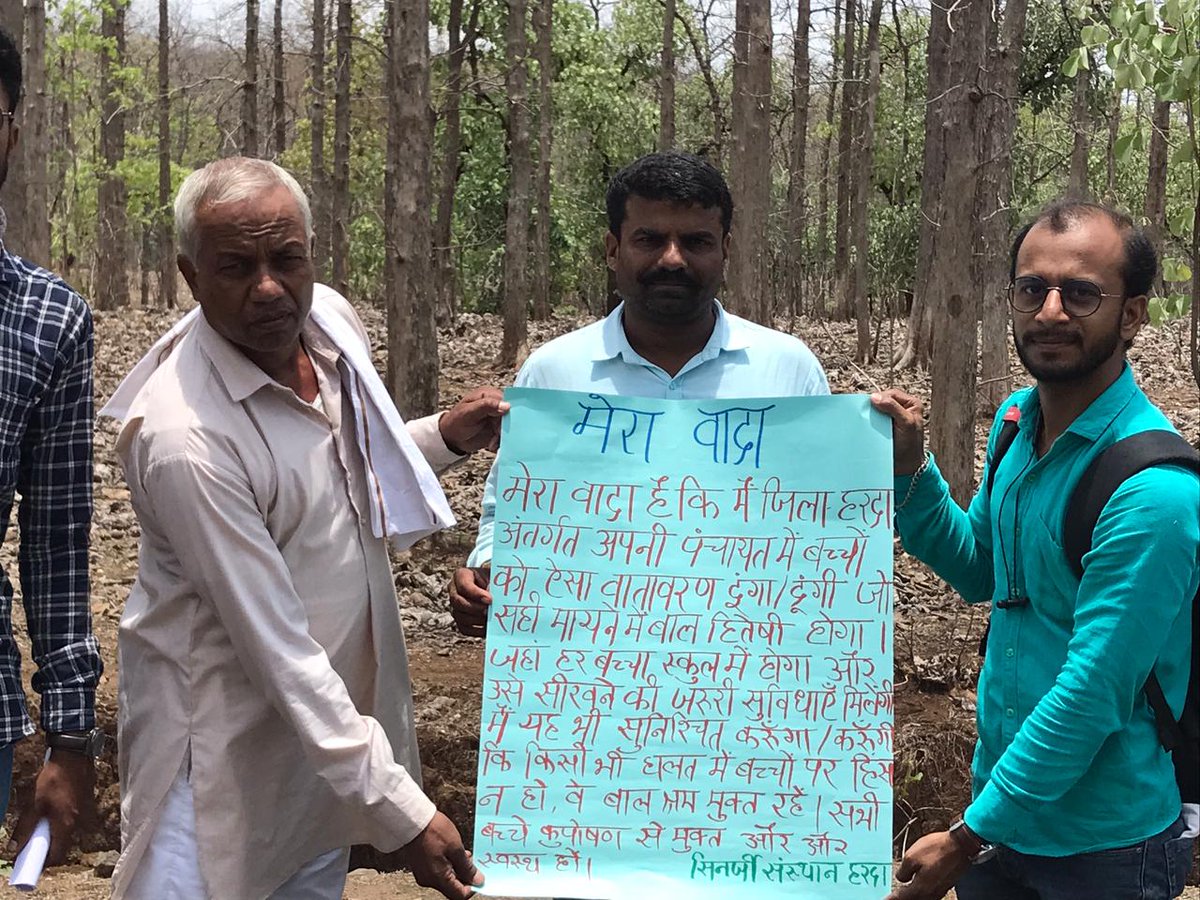 मेरा वादा
मेरा वादा हैं कि मैं जिला हरदा
अंतर्गत अपनी पंचायत में बच्चों
को ऐसा वातावरण दूंगा/दूंगी जो
सही मायने में बाल हितैषी होगा।
जहां हर बच्चा स्कुल में होगा और
उसे सीखने की जरुरी सुविधाएँ मिलेंगी
मैं यह भी सुनिश्चित करूँगा/करूँगी
कि किसी भी हालत में बच्चों पर हिंसा
न हो, वे बाल श्रम मुक्त रहें। सभी
बच्चे कुपोषण से मुक्त और और
स्वस्थ हों।
सिनर्जी संस्थान हरदा